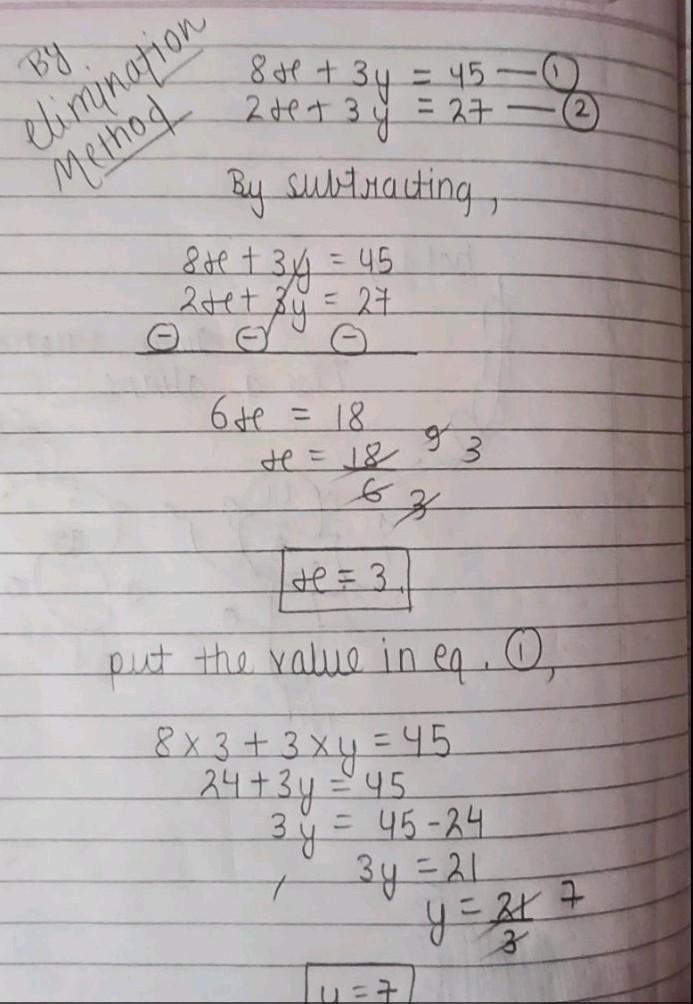 By
elimination
Method
8x + 3y = 45 — ①
2x + 3y = 27 — ②
By subtracting,
8x + 3y = 45
2x + 3y = 27
⊖ ⊖ ⊖
6x = 18
x = 18/6 9 3
3
x = 3.
put the value in eq. ①,
8 × 3 + 3 × y = 45
24 + 3y = 45
3y = 45 - 24
3y = 21
y = 21/3 7
y = 7